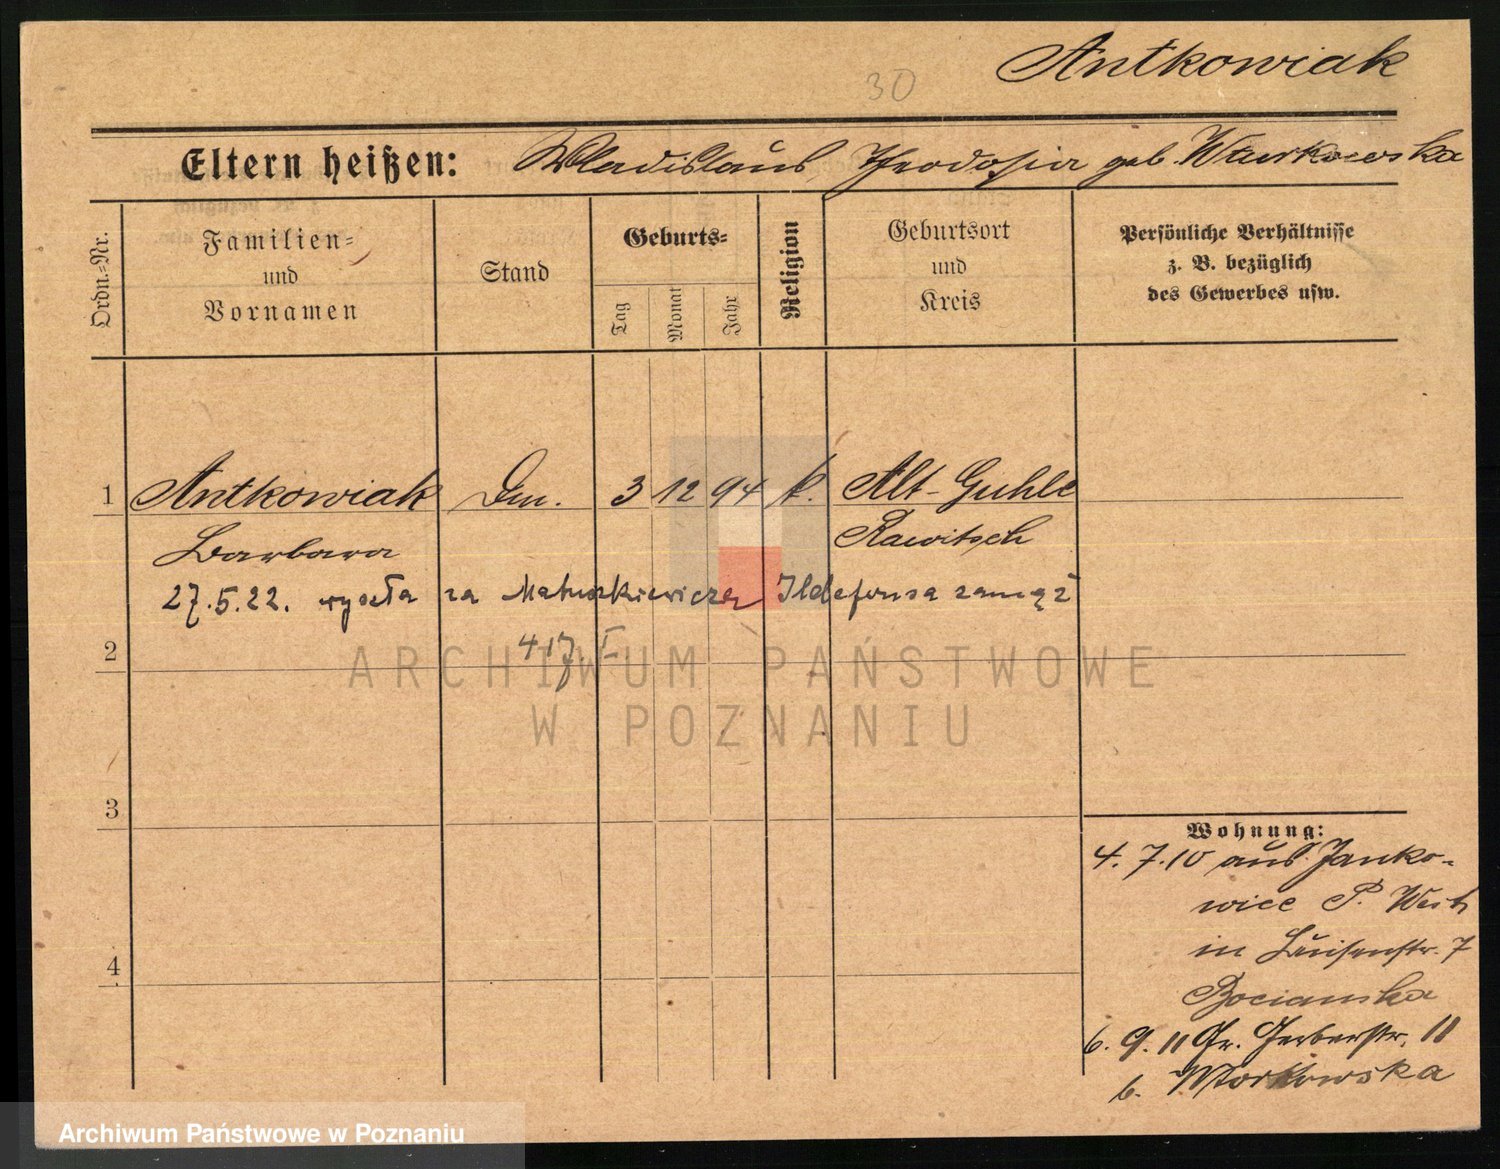 Antkowiak
30
Eltern heißen: Wladislaus, Theodosia geb.
Ordn.-Nr.
Familien-
und
Vornamen
Stand
Geburts-
Tag
Monat
Jahr
Religion
Geburtsort
und
Kreis
Persönliche Verhältnisse
z. B. bezüglich
des Gewerbes usw.
1 Antkowiak 3 12 94 k. Alt-Guhle
Barbara Rawitsch
27.5.22. wyszła za Matuszkiewicza Ildefonsa zamąż
417. I
2
ARCHIWUM PAŃSTWOWE
W POZNANIU
3
4
Wohnung:
4.7.10 aus Janko-
wice P. West
in Luisenstr. 7
Bocianska
6.9.11 Gr. Gerberstr. 11
b.
Archiwum Państwowe w Poznaniu